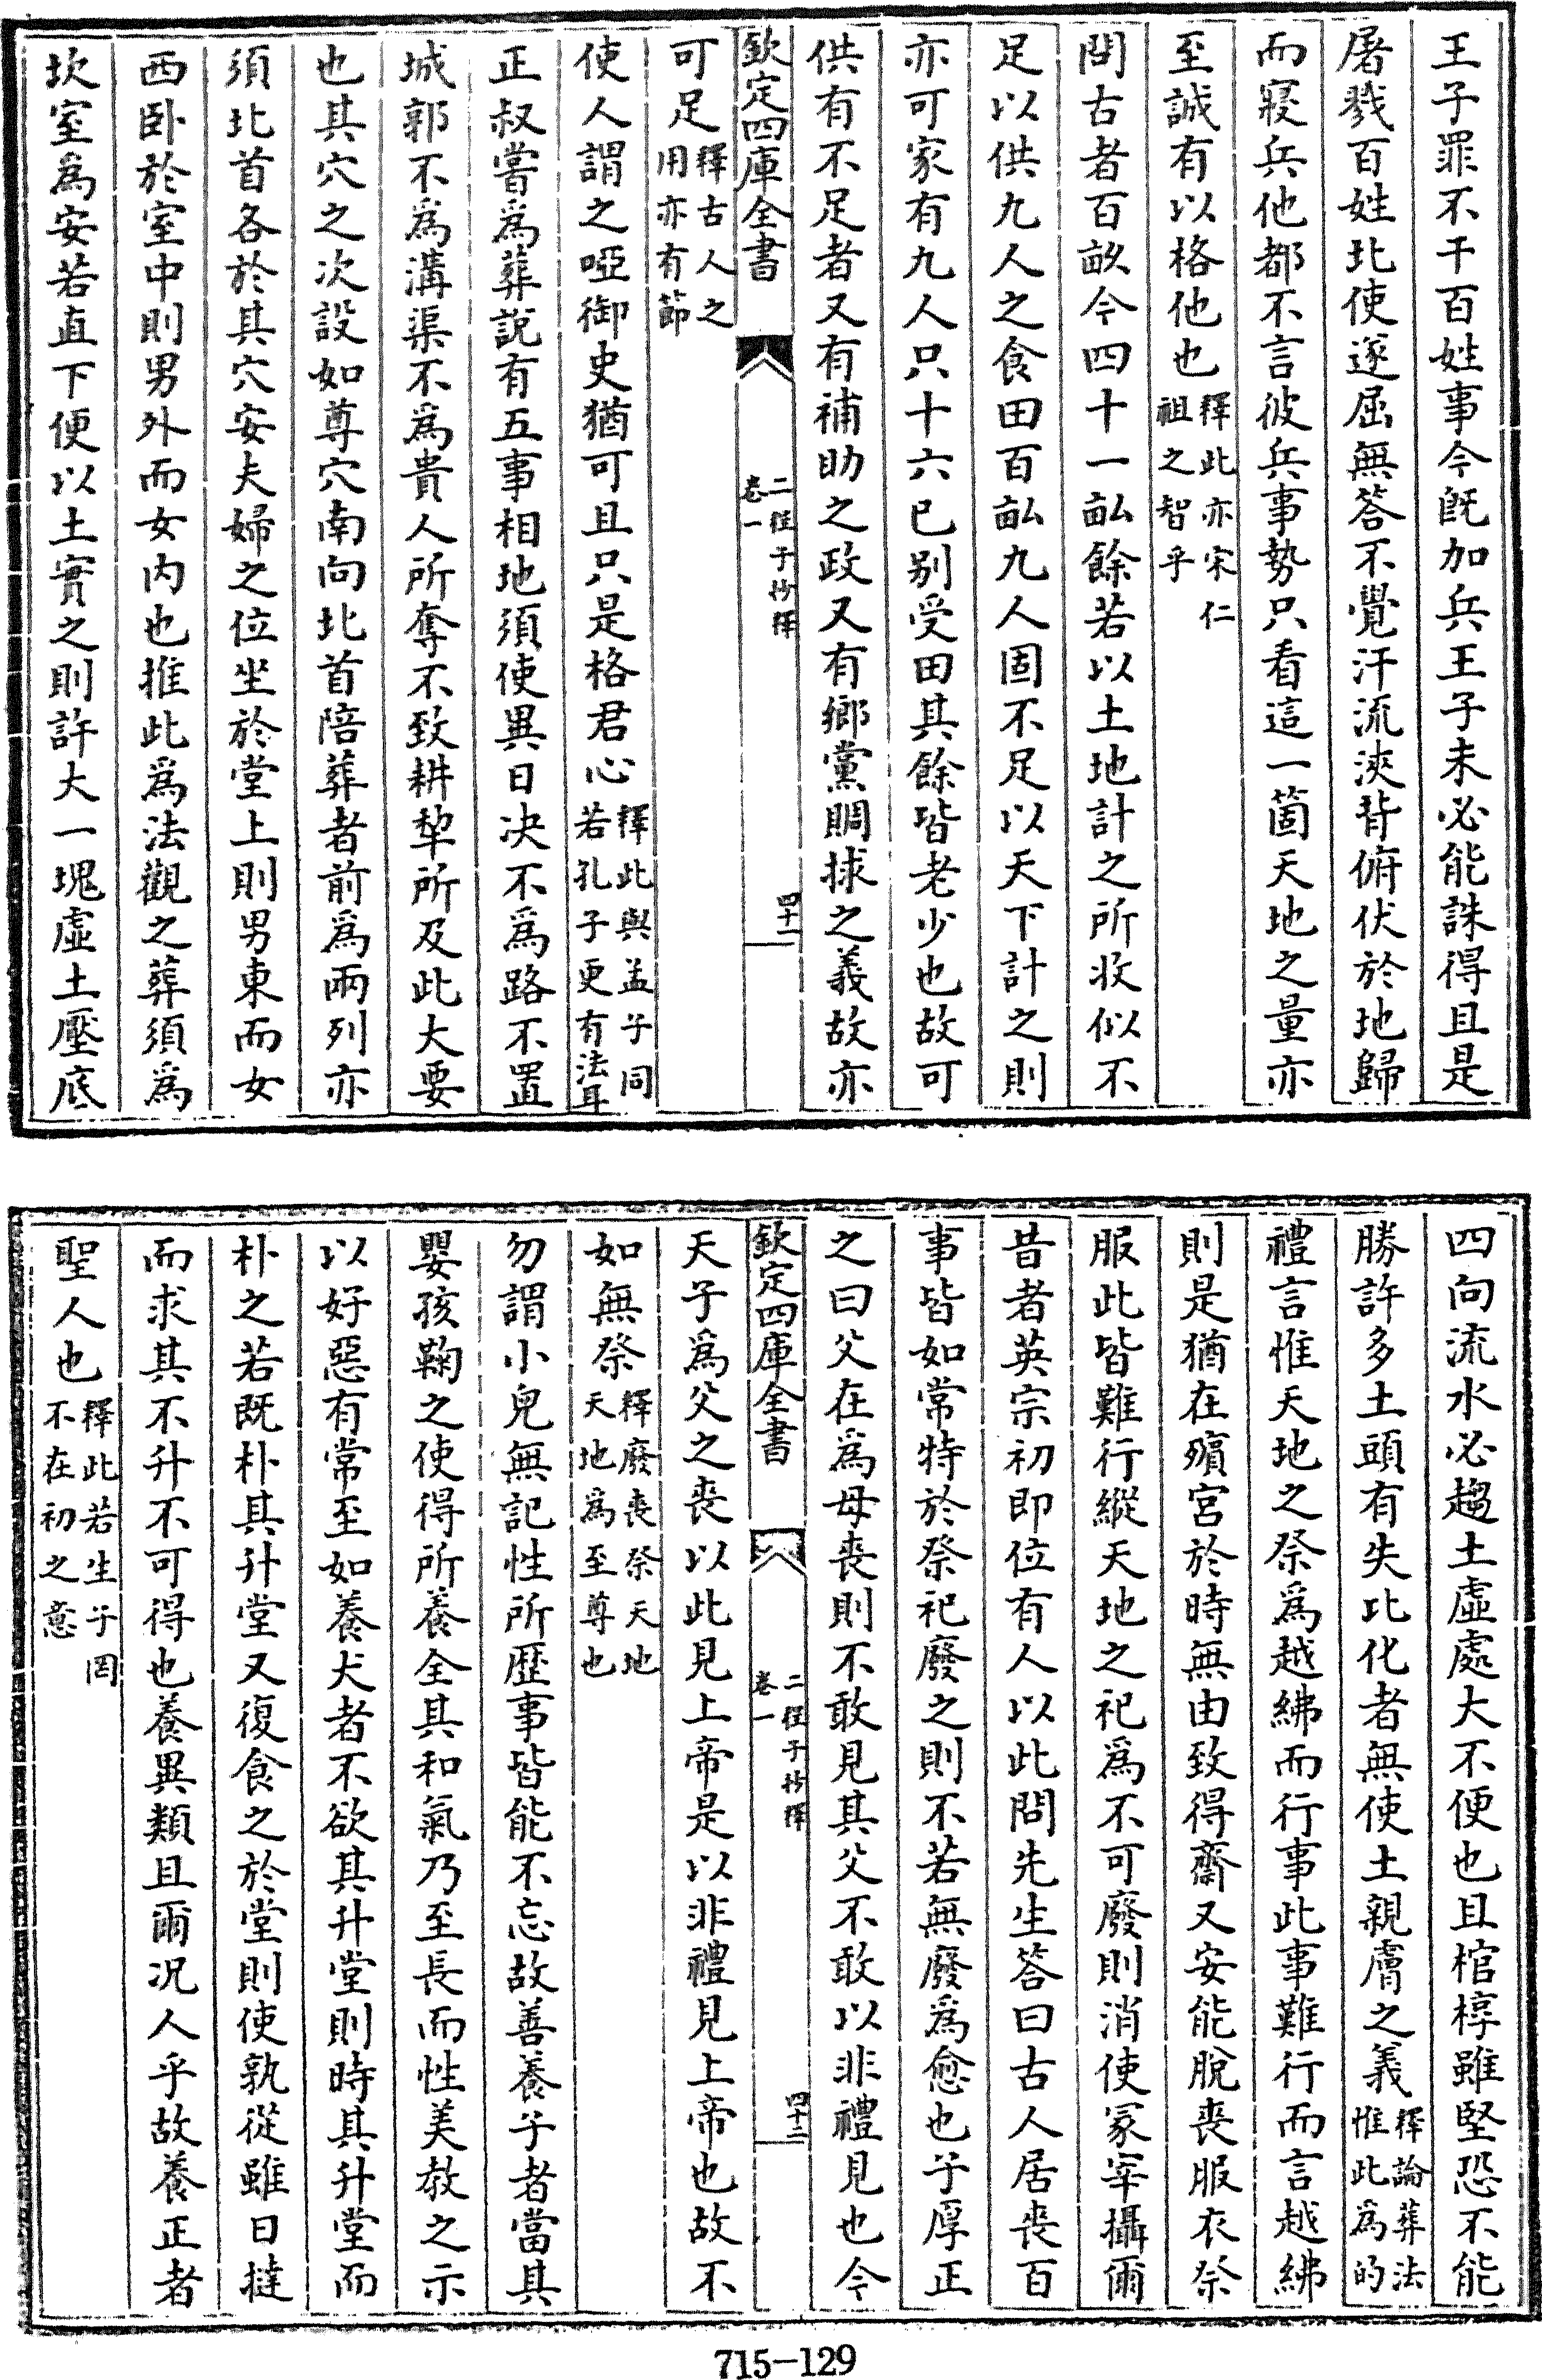 王子罪不干百姓事今旣加兵王子未必能誅得且是
屠戮百姓北使遂屈無答不覺汗流浹背俯伏於地歸
而寢兵他都不言彼兵事勢只看這一箇天地之量亦
至誠有以格他也釋此亦宋仁祖之智乎
閒古者百畝今四十一畝餘若以土地計之所收似不
足以供九人之食田百畝九人固不足以天下計之則
亦可家有九人只十六已别受田其餘皆老少也故可
供有不足者又有補助之政又有鄉黨賙捄之義故亦
欽定四庫全書
二程子抄釋
卷一
四十一
可足釋古人之用亦有節
使人謂之啞御史猶可且只是格君心釋此與孟子同若孔子更有法耳
正叔嘗爲葬説有五事相地須使異日决不爲路不置
城郭不爲溝渠不爲貴人所奪不致耕犂所及此大要
也其穴之次設如尊穴南向北首陪葬者前爲兩列亦
須北首各於其穴安夫婦之位坐於堂上則男東而女
西卧於室中則男外而女内也推此爲法觀之葬須爲
坎室爲安若直下便以土實之則許大一塊虚土壓底
四向流水必趨土虚處大不便也且棺椁雖堅恐不能
勝許多土頭有失比化者無使土親膚之義釋論葬法惟此爲的
禮言惟天地之祭爲越紼而行事此事難行而言越紼
則是猶在殯宮於時無由致得齋又安能脫喪服衣祭
服此皆難行縱天地之祀爲不可廢則消使冢宰攝爾
昔者英宗初即位有人以此問先生答曰古人居喪百
事皆如常特於祭祀廢之則不若無廢爲愈也子厚正
之曰父在爲母喪則不敢見其父不敢以非禮見也今
欽定四庫全書
二程子抄釋
卷一
四十二
天子爲父之喪以此見上帝是以非禮見上帝也故不
如無祭釋廢喪祭天地天地爲至尊也
勿謂小兒無記性所歴事皆能不忘故善養子者當其
嬰孩鞠之使得所養全其和氣乃至長而性美教之示
以好惡有常至如養犬者不欲其升堂則時其升堂而
朴之若既朴其升堂又復食之於堂則使孰從雖日撻
而求其不升不可得也養異類且爾况人乎故養正者
聖人也釋此若生子罔不在初之意
715-129